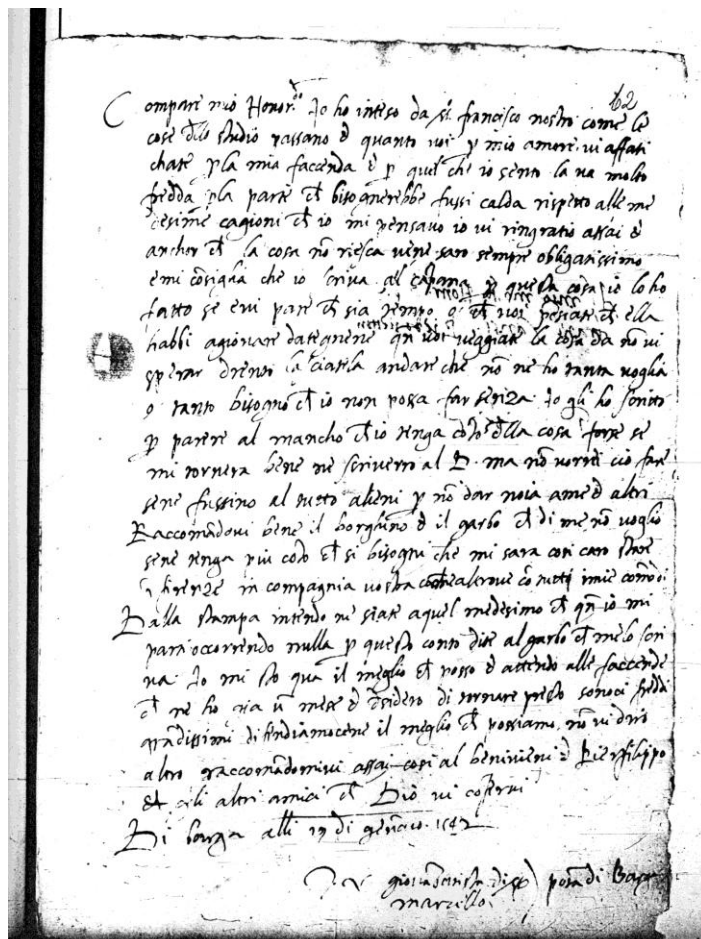 62
Compare mio Honor.do Io ho inteso da sr francisco nostro come le
cose dello studio passano & quanto voi p mio amore vi affati
chate p la mia faccenda & p quel che io sento la va molto
fredda p la parte ch bisognerebbe fussi calda rispetto alle me
desime cagioni ch io mi pensavo io vi ringratio assai &
anchor ch la cosa nō riesca vene saro sempre obligatissimo
e mi cōsiglia che io scriva al capana p questa cosa io lo ho
fatto se evi pare ch sia tempo o ch voi pensiate ch ella
habbi agiovare dategnene qn voi veggiate la cosa da nō vi
sperar drento lasciatela andare che nō ne ho tanta voglia
o tanto bisogno ch io non possa far senza. Io gli ho scritto
p parere al mancho ch io tenga cōto della cosa forse se
mi tornera bene ne scriverro al D. ma nō vorrei cio fare
sene fussino al tutto alieni p nō dar noia ame & altri
Raccomādovi bene il borghino & il garbo ch di me nō voglio
sene tenga piu cōto ch si bisogni che mi sara cosi caro stare
a firenze in compagnia vostra come altrove cō tutti imie comodi
Dalla stampa intendo ne siate aquel medesimo ch qn io mi
parti occorrendo nulla p questo conto dite al garbo ch melo scri
va. Io mi sto qua il meglio ch posso & attendo alle faccende
ch ne ho gia ū mese & desidero di tornare presto sonoci freddi
grādissimi difendiamocene il meglio ch possiamo. nō vi diro
altro raccomādomivi assai cosi al benivieni & Pierfilippo
& agli altri amici ch Dio vi cōservi
Di barga alli 19 di gennaio 1542
giovābatista di potà di Barga
marcello